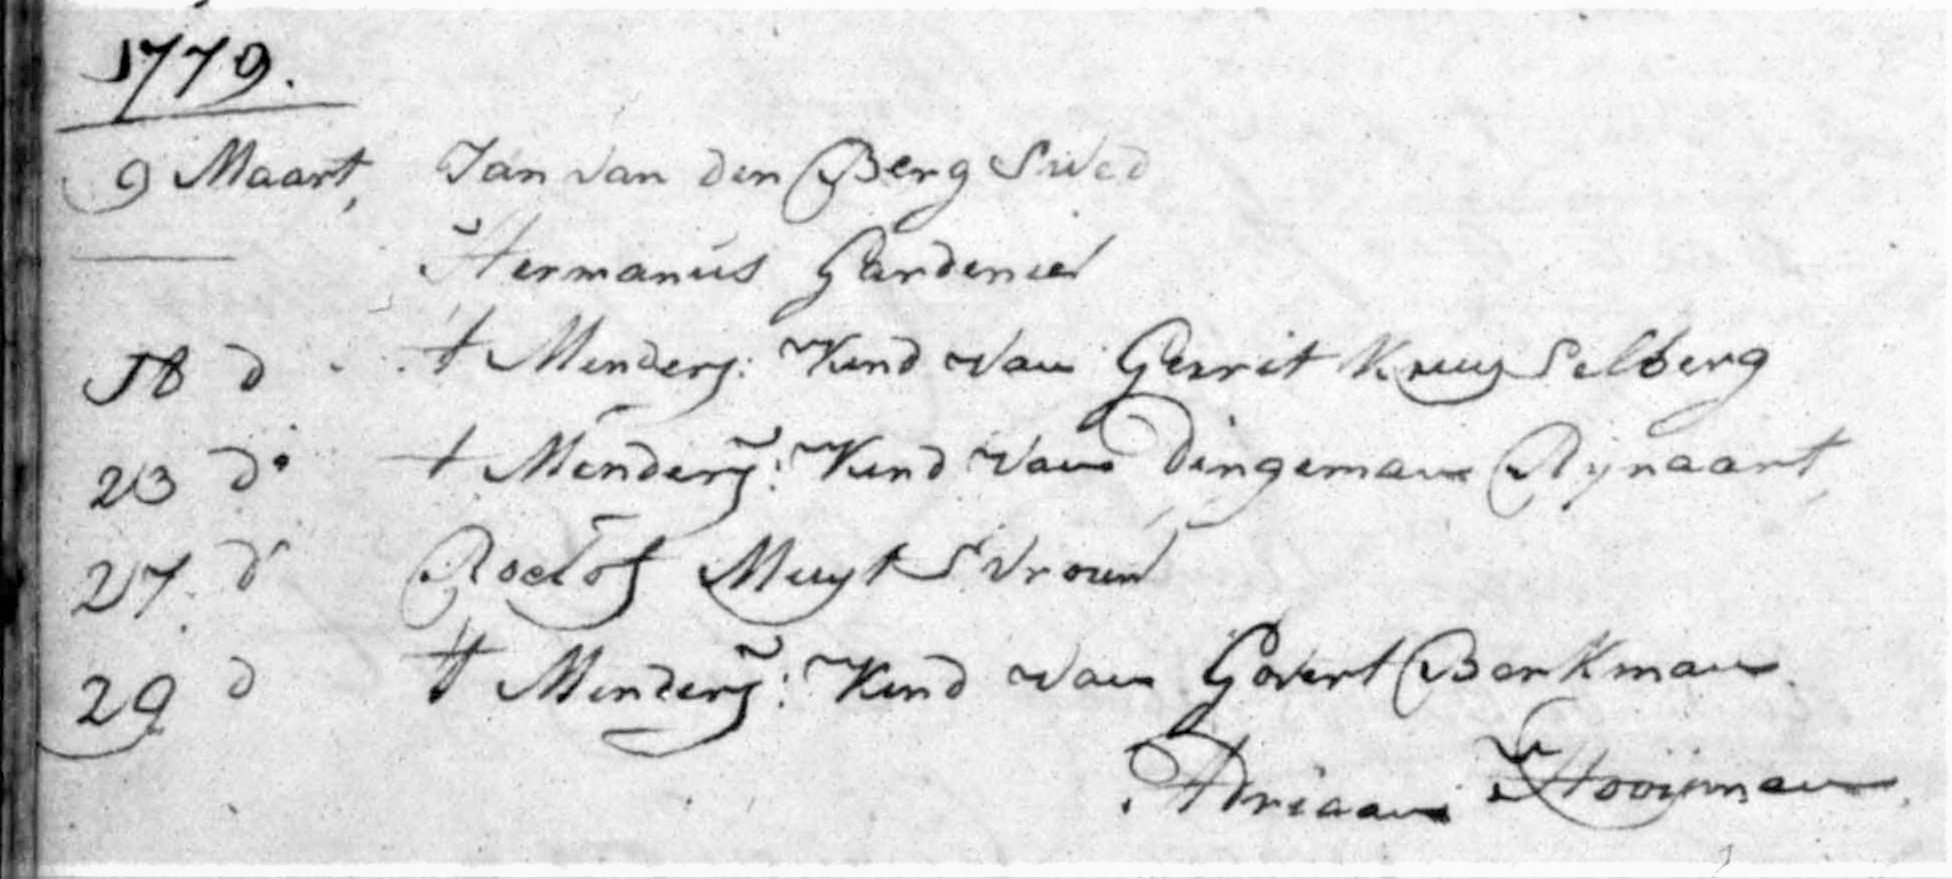 1779.
9 Maart, Jan van den Berg S Wed
Hermanus Gardenier
18 d t Minderj: Kind van Gerrit Kruysselberg
23 do t Minderj: Kind van Dingeman Rijnaart
27. do Roelof Muyt S Vrouw
29 d t Minderj: Kind van Govert Berkman.
Adriaan Hooijman